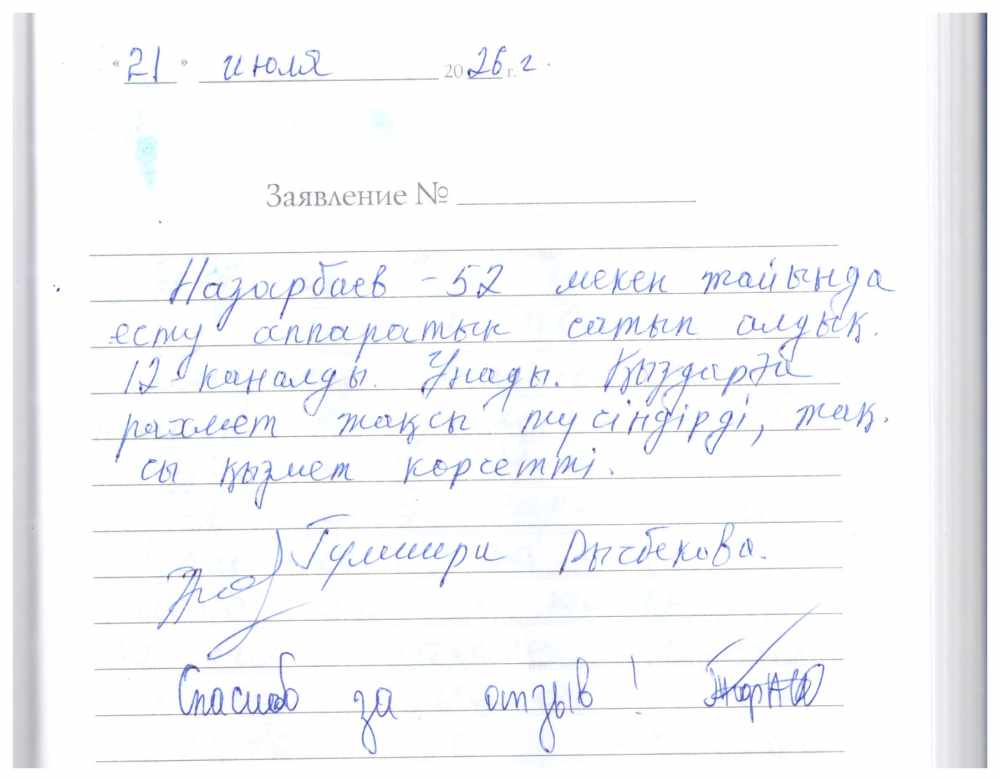 « 21 » июля 2026 г. г.
Заявление №
Назарбаев - 52 мекен жайында
есту аппаратын сатып алдық.
12 каналды. Ұнады. Қыздарға
рахмет жақсы түсіндірді, жақ.
сы қызмет көрсетті.
Гулшири Рысбекова.
Спасибо за отзыв!